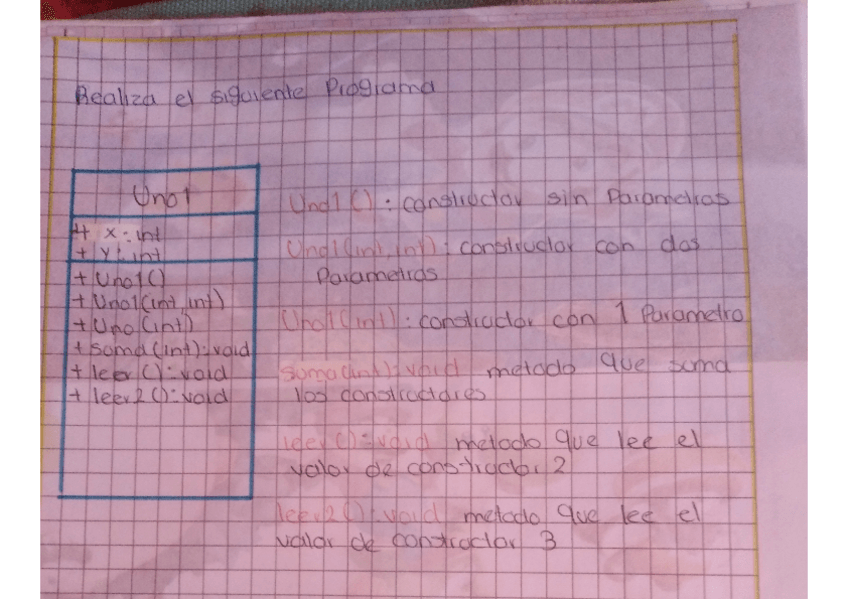 Realiza el siguiente Programa
Uno1
+ x: int
+ y: int
+ Uno1()
+ Uno1(int, int)
+ Uno(int)
+ suma(int): void
+ leer(): void
+ leer2(): void
Uno1(): constructor sin Parametros
Uno1(int, int): constructor con dos
Parametros
Uno1(int): constructor con 1 Parametro
suma(int): void metodo que suma
los constructores
leer(): void metodo que lee el
valor de constructor 2
leer2(): void metodo que lee el
valor de constructor 3